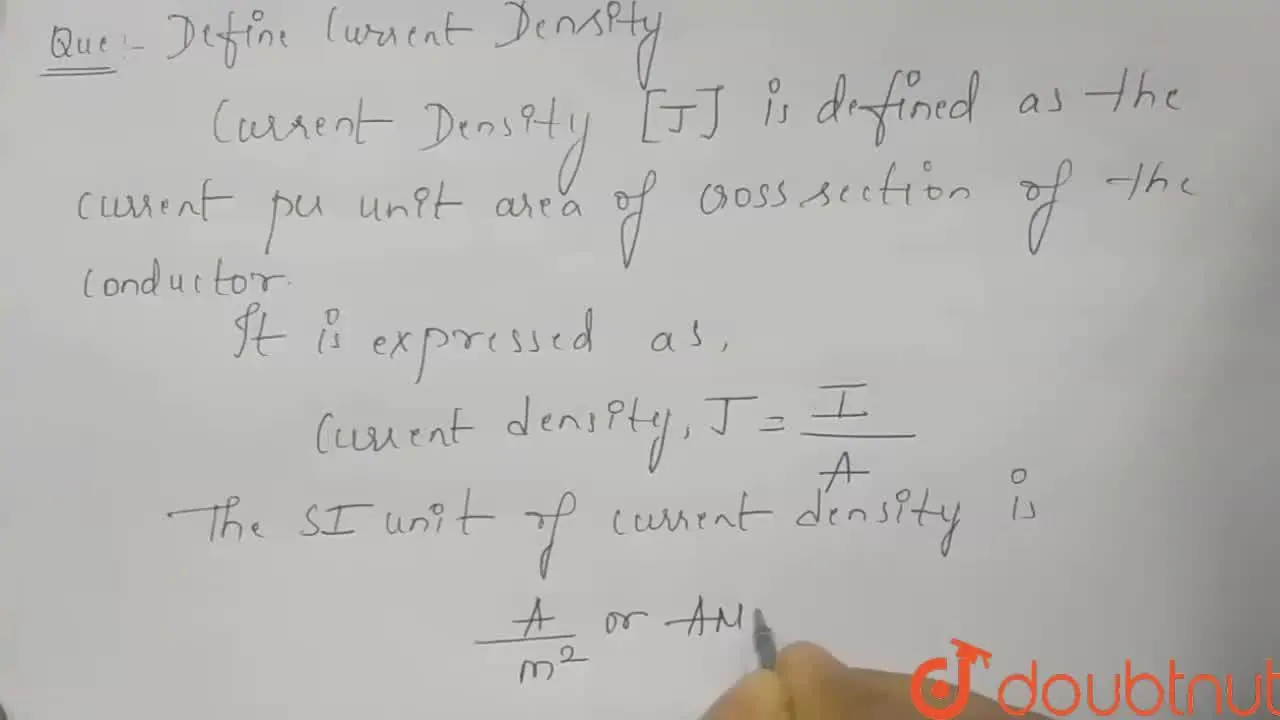 Que:- Define Current Density
Current Density [J] is defined as the
current per unit area of cross section of the
conductor.
It is expressed as,
Current density, J = I
A
The SI unit of current density is
A or AM
m²
doubtnut